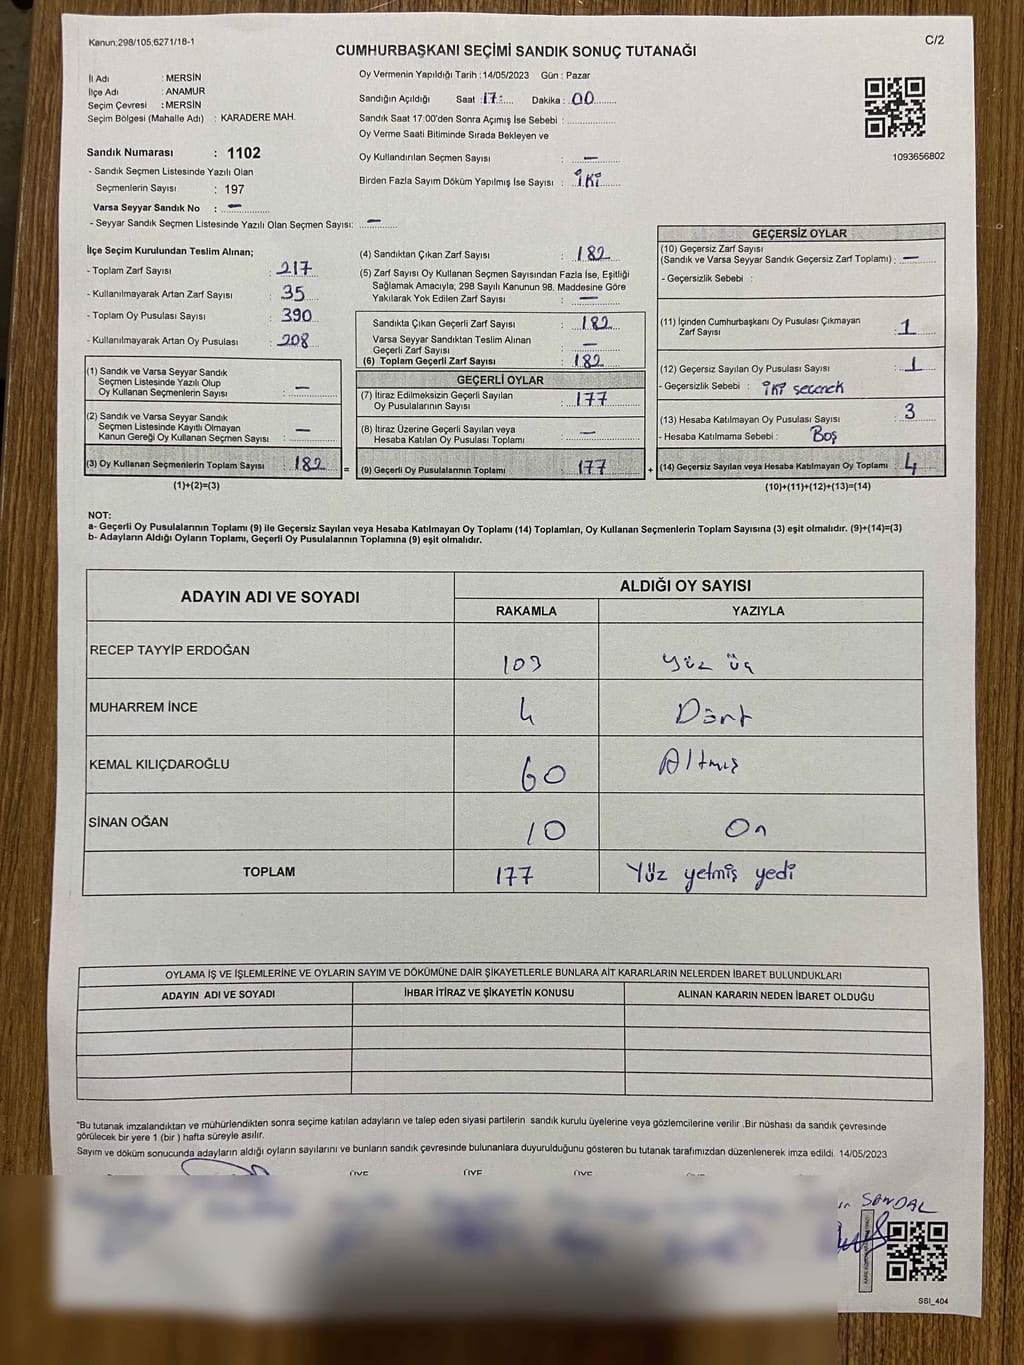 Kanun;298/105,6271/18-1
C/2
CUMHURBAŞKANI SEÇİMİ SANDIK SONUÇ TUTANAĞI
İl Adı : MERSİN
İlçe Adı : ANAMUR
Seçim Çevresi : MERSİN
Seçim Bölgesi (Mahalle Adı) : KARADERE MAH.
Sandık Numarası : 1102
- Sandık Seçmen Listesinde Yazılı Olan
Seçmenlerin Sayısı : 197
Varsa Seyyar Sandık No : —
- Seyyar Sandık Seçmen Listesinde Yazılı Olan Seçmen Sayısı: —
Oy Vermenin Yapıldığı Tarih : 14/05/2023 Gün : Pazar
Sandığın Açıldığı Saat : 17: Dakika : 00
Sandık Saat 17:00'den Sonra Açımış İse Sebebi :
Oy Verme Saati Bitiminde Sırada Bekleyen ve
Oy Kullandırılan Seçmen Sayısı : —
Birden Fazla Sayım Döküm Yapılmış İse Sayısı : iki
1093656802
İlçe Seçim Kurulundan Teslim Alınan;
- Toplam Zarf Sayısı : 217
- Kullanılmayarak Artan Zarf Sayısı : 35
- Toplam Oy Pusulası Sayısı : 390
- Kullanılmayarak Artan Oy Pusulası : 208
(1) Sandık ve Varsa Seyyar Sandık
Seçmen Listesinde Yazılı Olup
Oy Kullanan Seçmenlerin Sayısı : —
(2) Sandık ve Varsa Seyyar Sandık
Seçmen Listesinde Kayıtlı Olmayan
Kanun Gereği Oy Kullanan Seçmen Sayısı : —
(3) Oy Kullanan Seçmenlerin Toplam Sayısı : 182 =
(1)+(2)=(3)
(4) Sandıktan Çıkan Zarf Sayısı : 182
(5) Zarf Sayısı Oy Kullanan Seçmen Sayısından Fazla İse, Eşitliği
Sağlamak Amacıyla; 298 Sayılı Kanunun 98. Maddesine Göre
Yakılarak Yok Edilen Zarf Sayısı : —
Sandıkta Çıkan Geçerli Zarf Sayısı : 182
Varsa Seyyar Sandıktan Teslim Alınan
Geçerli Zarf Sayısı : —
(6) Toplam Geçerli Zarf Sayısı : 182
GEÇERLİ OYLAR
(7) İtiraz Edilmeksizin Geçerli Sayılan
Oy Pusulalarının Sayısı : 177
(8) İtiraz Üzerine Geçerli Sayılan veya
Hesaba Katılan Oy Pusulası Toplamı : —
(9) Geçerli Oy Pusulalarının Toplamı : 177 +
GEÇERSİZ OYLAR
(10) Geçersiz Zarf Sayısı
(Sandık ve Varsa Seyyar Sandık Geçersiz Zarf Toplamı) : —
- Geçersizlik Sebebi :
(11) İçinden Cumhurbaşkanı Oy Pusulası Çıkmayan
Zarf Sayısı : 1
(12) Geçersiz Sayılan Oy Pusulası Sayısı : 1
- Geçersizlik Sebebi : iki secenek
(13) Hesaba Katılmayan Oy Pusulası Sayısı : 3
- Hesaba Katılmama Sebebi : Boş
(14) Geçersiz Sayılan veya Hesaba Katılmayan Oy Toplamı : 4
(10)+(11)+(12)+(13)=(14)
NOT:
a- Geçerli Oy Pusulalarının Toplamı (9) ile Geçersiz Sayılan veya Hesaba Katılmayan Oy Toplamı (14) Toplamları, Oy Kullanan Seçmenlerin Toplam Sayısına (3) eşit olmalıdır. (9)+(14)=(3)
b- Adayların Aldığı Oyların Toplamı, Geçerli Oy Pusulalarının Toplamına (9) eşit olmalıdır.
ADAYIN ADI VE SOYADI ALDIĞI OY SAYISI
RAKAMLA YAZIYLA
RECEP TAYYİP ERDOĞAN 103 Yüz üç
MUHARREM İNCE 4 Dört
KEMAL KILIÇDAROĞLU 60 Altmış
SİNAN OĞAN 10 On
TOPLAM 177 Yüz yetmiş yedi
OYLAMA İŞ VE İŞLEMLERİNE VE OYLARIN SAYIM VE DÖKÜMÜNE DAİR ŞİKAYETLERLE BUNLARA AİT KARARLARIN NELERDEN İBARET BULUNDUKLARI
ADAYIN ADI VE SOYADI İHBAR İTİRAZ VE ŞİKAYETİN KONUSU ALINAN KARARIN NEDEN İBARET OLDUĞU
*Bu tutanak imzalandıktan ve mühürlendikten sonra seçime katılan adayların ve talep eden siyasi partilerin sandık kurulu üyelerine veya gözlemcilerine verilir .Bir nüshası da sandık çevresinde
görülecek bir yere 1 (bir ) hafta süreyle asılır.
Sayım ve döküm sonucunda adayların aldığı oyların sayılarını ve bunların sandık çevresinde bulunanlara duyurulduğunu gösteren bu tutanak tarafımızdan düzenlenerek imza edildi. 14/05/2023
ÜYE ÜYE ÜYE
SANDAL
SSI_404